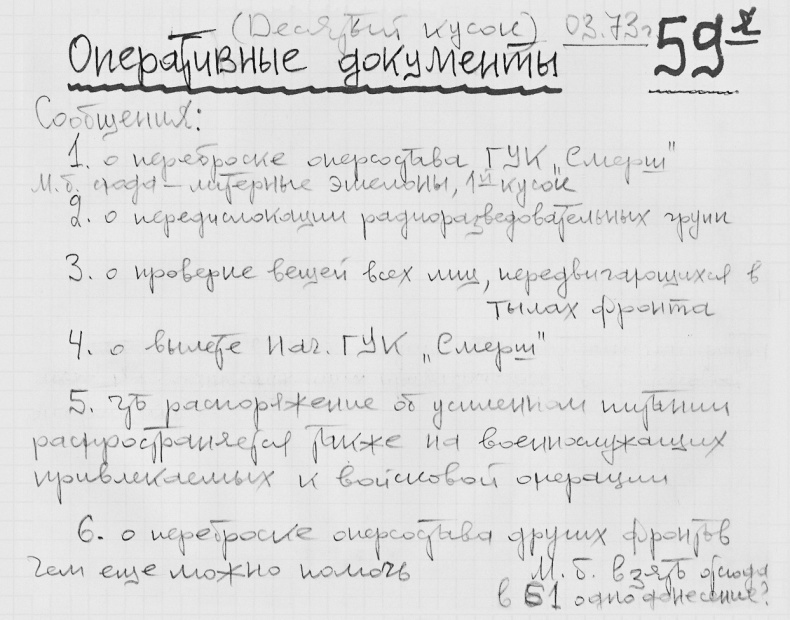 (Десятый кусок) 03.73г
Оперативные документы 59я
Сообщения:
1. о переброске оперсостава ГУК „Смерш"
М.б. сюда – литерные эшелоны, 1й кусок
2. о передислокации радиоразведовательных групп
3. о проверке вещей всех лиц, передвигающихся в
тылах фронта
4. о вылете Нач. ГУК „Смерш"
5. что распоряжение об усиленном питании
распространяется также на военнослужащих
привлекаемых к войсковой операции
6. о переброске оперсостава других фронтов
Чем еще можно помочь М.б. взять отсюда
в 61 одно донесение?